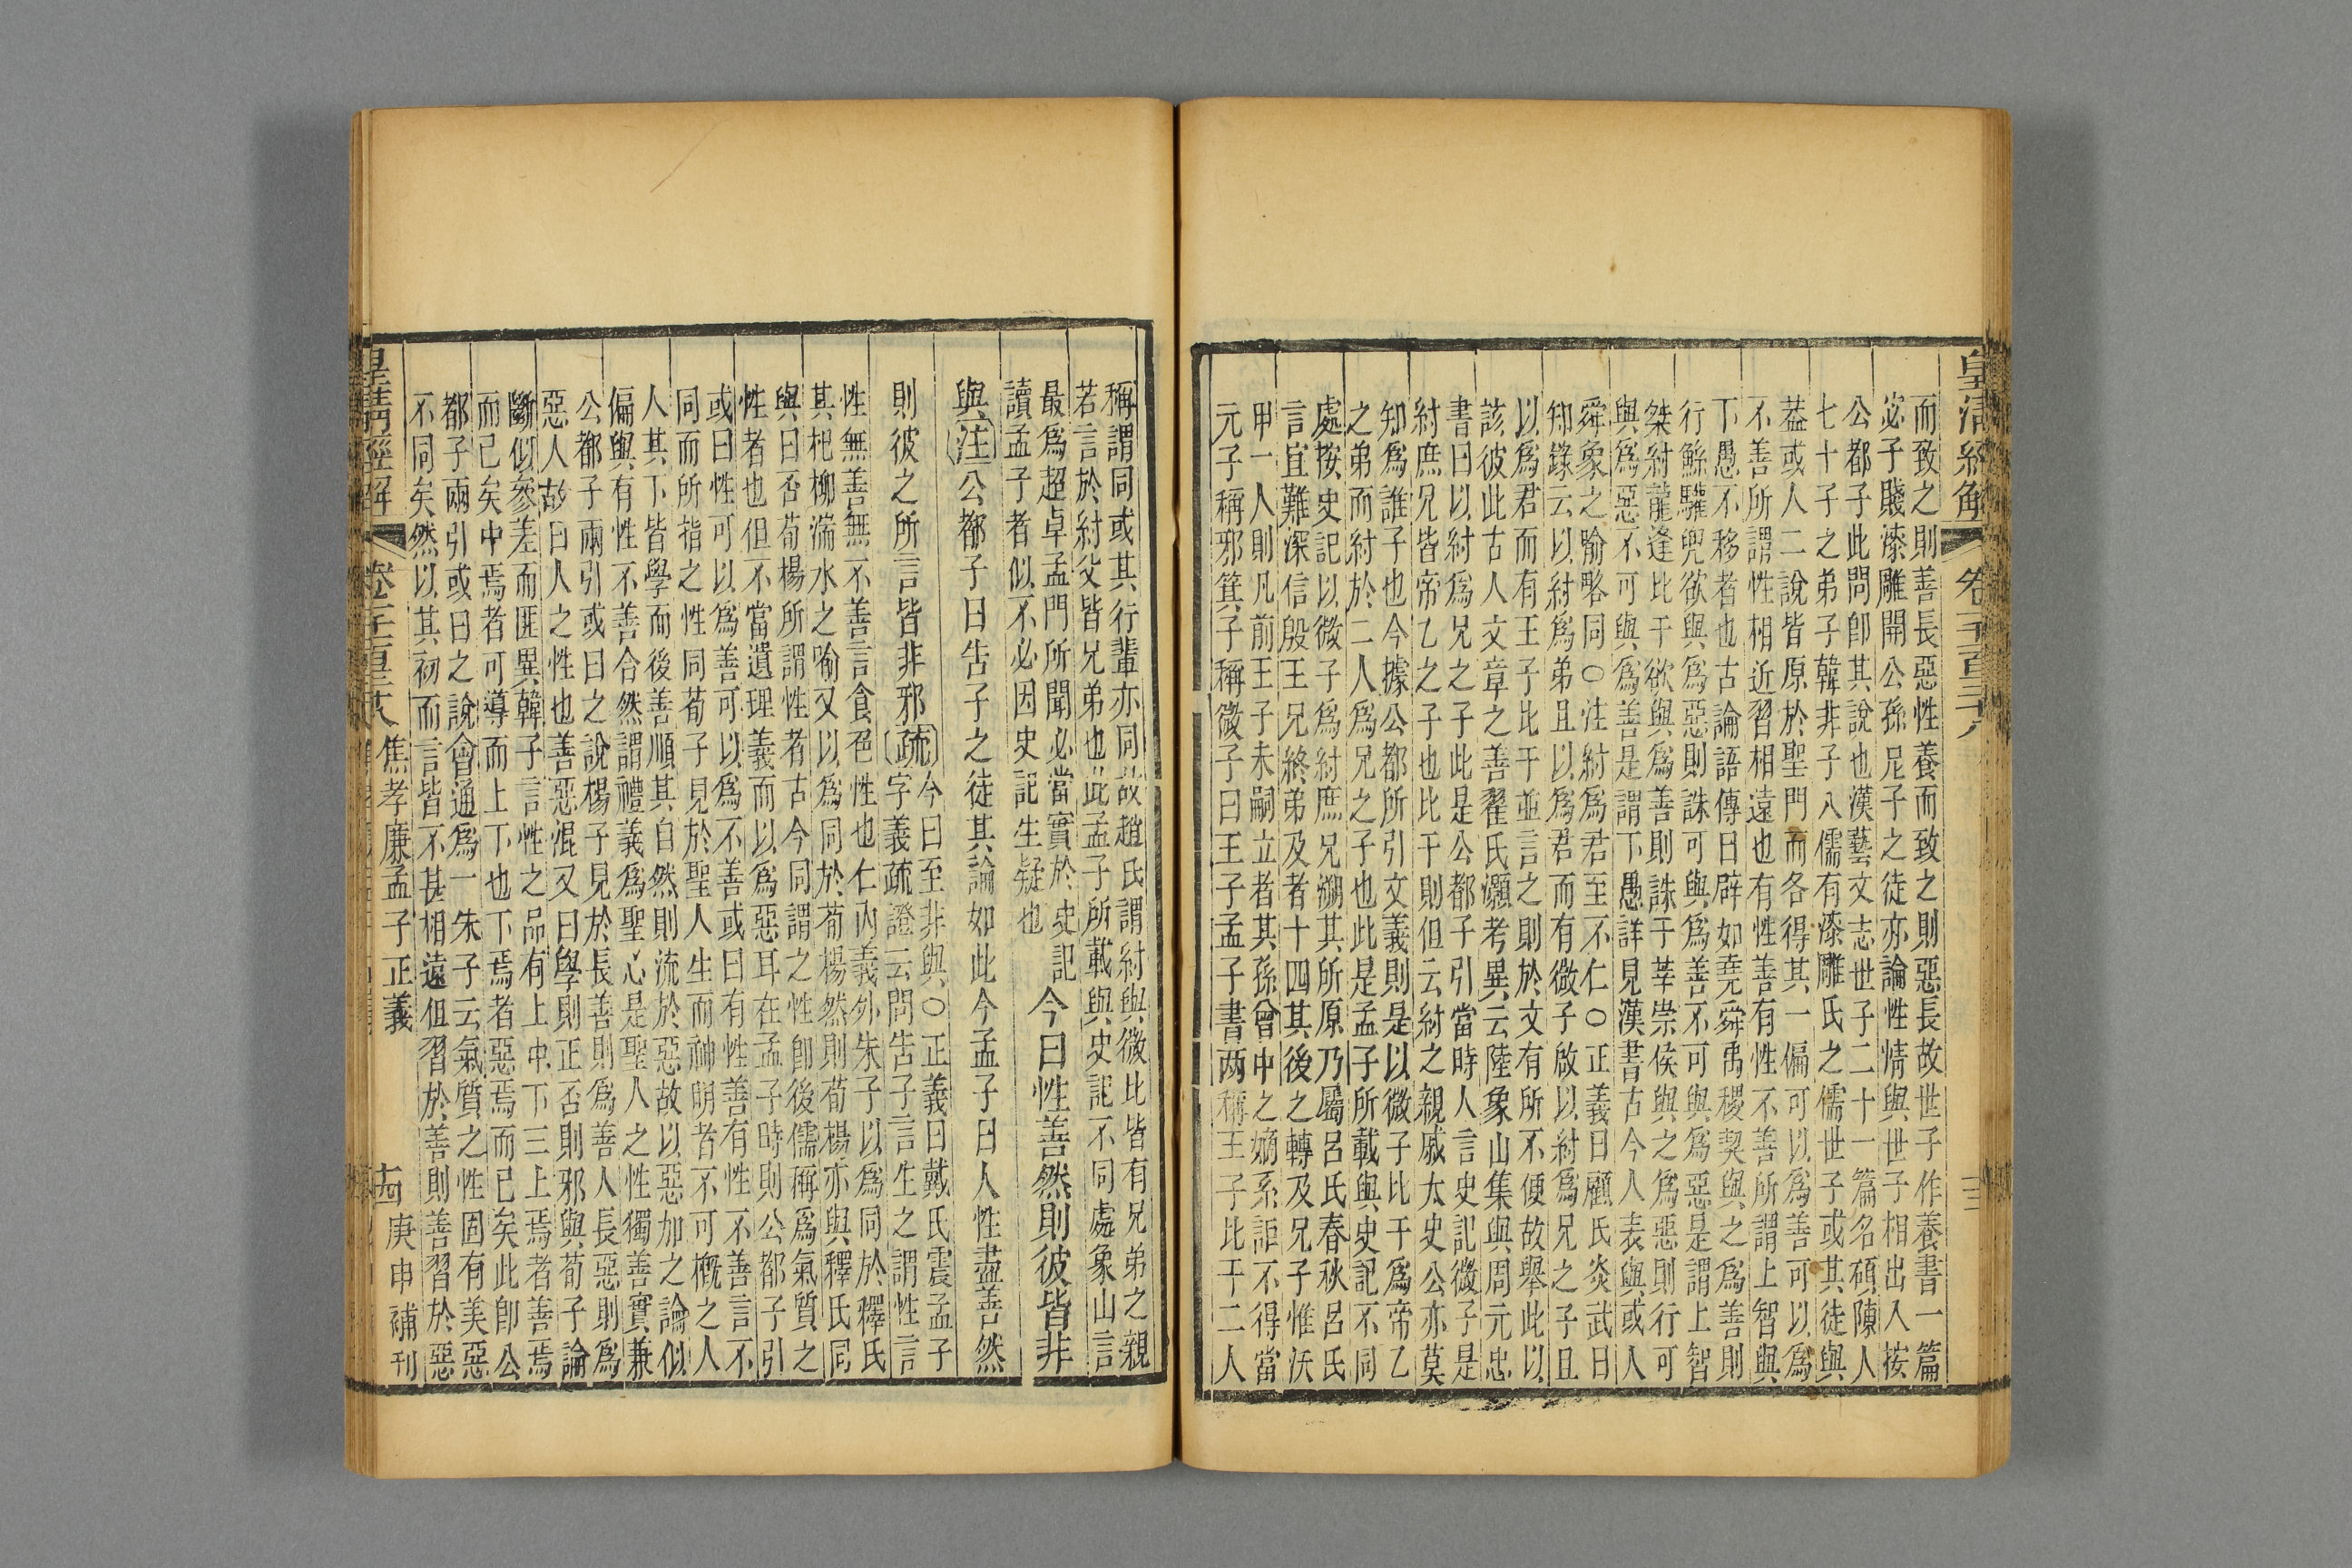 皇清經解
卷千一百三十八
十三
而致之則善長惡性養而致之則惡長故世子作養書一篇
宓子賤漆雕開公孫尼子之徒亦論性情與世子相出入按
公都子此問卽其說也漢藝文志世子二十一篇名碩陳人
七十子之弟子韓非子八儒有漆雕氏之儒世子或其徒與
蓋或人二說皆原於聖門而各得其一偏可以爲善可以爲
不善所謂性相近習相遠也有性善有性不善所謂上智與
下愚不移者也古論語傳曰辟如堯舜禹稷契與之爲善則
行鯀驩兜欲與爲惡則誅可與爲善不可與爲惡是謂上智
桀紂龍逢比干欲與爲善則誅于莘崇侯與之爲惡則行可
與爲惡不可與爲善是謂下愚詳見漢書古今人表與或人
舜象之喻略同○注紂爲君至不仁○正義曰顧氏炎武日
知錄云以紂爲弟且以爲君而有微子啟以紂爲兄之子且
以爲君而有王子比干並言之則於文有所不便故舉此以
該彼此古人文章之善翟氏灝考異云陸象山集與周元忠
書曰以紂爲兄之子此是公都子引當時人言史記微子是
紂庶兄皆帝乙之子也比干則但云紂之親戚太史公亦莫
知爲誰子也今據公都所引文義則是以微子比干爲帝乙
之弟而紂於二人爲兄之子也此是孟子所載與史記不同
處按史記以微子爲紂庶兄溯其所原乃屬呂氏春秋呂氏
言宜難深信殷王兄終弟及者十四其後之轉及兄子惟沃
甲一人則凡前王子未嗣立者其孫曾中之嫡系詎不得當
元子稱邪箕子稱微子曰王子孟子書两稱王子比干二人
稱謂同或其行輩亦同故趙氏謂紂與微比皆有兄弟之親
若言於紂父皆兄弟也此孟子所載與史記不同處象山言
最爲超卓孟門所聞必當實於史記
讀孟子者似不必因史記生疑也
今曰性善然則彼皆非
與注公都子曰告子之徒其論如此今孟子曰人性盡善然
則彼之所言皆非邪疏
今曰至非與○正義曰戴氏震孟子
字義疏證云問告子言生之謂性言
性無善無不善言食色性也仁內義外朱子以爲同於釋氏
其杞柳湍水之喻又以爲同於荀楊然則荀楊亦與釋氏同
與曰否荀楊所謂性者古今同謂之性卽後儒稱爲氣質之
性者也但不當遺理義而以爲惡耳在孟子時則公都子引
或曰性可以爲善可以爲不善或曰有性善有性不善言不
同而所指之性同荀子見於聖人生而神明者不可槪之人
人其下皆學而後善順其自然則流於惡故以惡加之論似
偏與有性不善合然謂禮義爲聖心是聖人之性獨善實兼
公都子兩引或曰之說楊子見於長善則爲善人長惡則爲
惡人故曰人之性也善惡混又曰學則正否則邪與荀子論
斷似參差而匪異韓子言性之品有上中下三上焉者善焉
而已矣中焉者可導而上下也下焉者惡焉而已矣此卽公
都子兩引或曰之說會通爲一朱子云氣質之性固有美惡
不同矣然以其初而言皆不甚相遠但習於善則善習於惡
皇清經解
卷千一百三十八
焦孝廉孟子正義
十四
庚申補刊